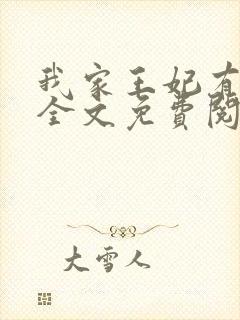 我家王妃有
全文免费阅
大雪人